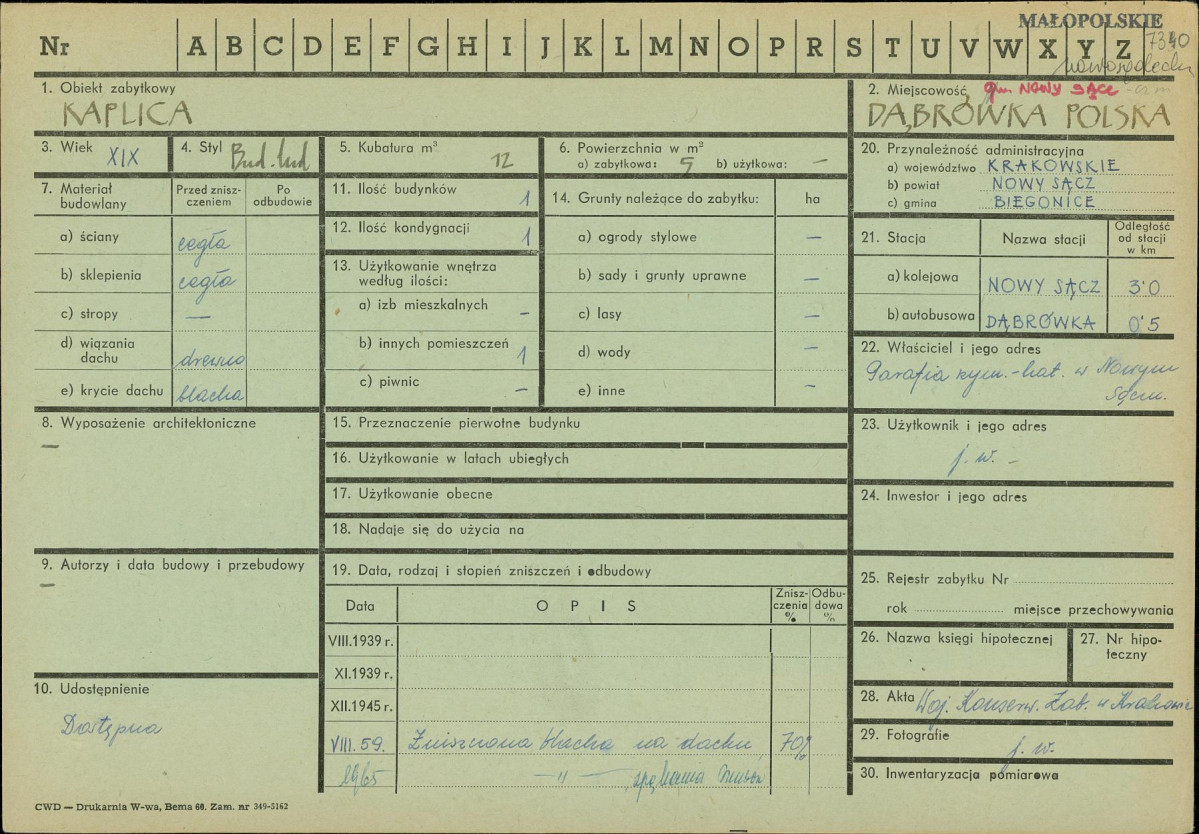 MAŁOPOLSKIE
7340
Nr A B C D E F G H I J K L M N O P R S T U V W X Y Z
1. Obiekt zabytkowy
KAPLICA
2. Miejscowość gm NOWY SĄCZ
DĄBRÓWKA POLSKA
3. Wiek XIX
4. Styl Bud. lud
5. Kubatura m³ 12
6. Powierzchnia w m²
a) zabytkowa: 5 b) użytkowa: —
7. Materiał budowlany
Przed zniszczeniem
Po odbudowie
a) ściany cegła
b) sklepienia cegła
c) stropy —
d) wiązania dachu drewno
e) krycie dachu blacha
8. Wyposażenie architektoniczne
—
9. Autorzy i data budowy i przebudowy
—
10. Udostępnienie
Dostępna
11. Ilość budynków 1
12. Ilość kondygnacji 1
13. Użytkowanie wnętrza według ilości:
a) izb mieszkalnych –
b) innych pomieszczeń 1
c) piwnic —
14. Grunty należące do zabytku: ha
a) ogrody stylowe —
b) sady i grunty uprawne —
c) lasy —
d) wody —
e) inne —
15. Przeznaczenie pierwotne budynku
16. Użytkowanie w latach ubiegłych
17. Użytkowanie obecne
18. Nadaje się do użycia na
19. Data, rodzaj i stopień zniszczeń i odbudowy
Data OPIS Zniszczenia % Odbudowa %
VIII.1939 r.
XI.1939 r.
XII.1945 r.
VIII. 59. Zniszczona blacha na dachu 70%
1965 — " — , spękania
20. Przynależność administracyjna
a) województwo KRAKOWSKIE
b) powiat NOWY SĄCZ
c) gmina BIEGONICE
21. Stacja Nazwa stacji Odległość od stacji w km
a) kolejowa NOWY SĄCZ 3·0
b) autobusowa DĄBRÓWKA 0·5
22. Właściciel i jego adres
Parafia rzym.-kat. w Nowym
Sączu.
23. Użytkownik i jego adres
j. w. –
24. Inwestor i jego adres
25. Rejestr zabytku Nr
rok miejsce przechowywania
26. Nazwa księgi hipotecznej
27. Nr hipoteczny
28. Akta Woj. Konserw. Zab. w Krakowie
29. Fotografie
j. w.
30. Inwentaryzacja pomiarowa
CWD — Drukarnia W-wa, Bema 60. Zam. nr 349-5162